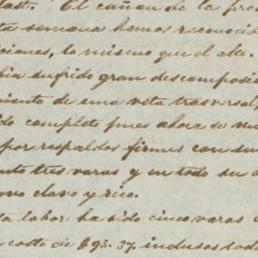 last. El cañon de la pro
ta semana hemos reconoci
ciones, lo mismo que el alto.
bia sufrido gran descomposi
miento de una veta trasversal,
do completo pues ahora se mu
por respaldos firmes con su
nto tres varas y en todo su
ono clavo y rico.
ta labor ha sido cinco varas
costo de $95.37. inclusos todo